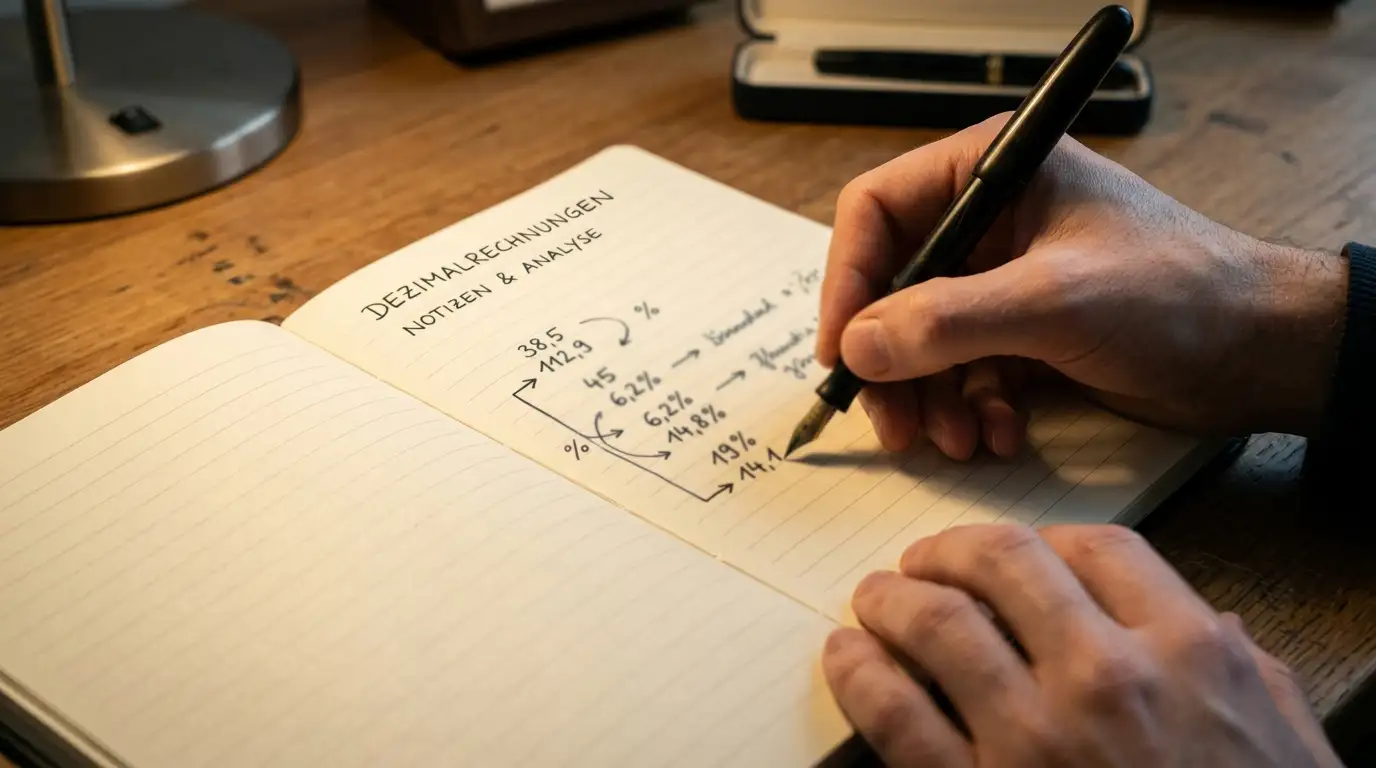 DEZIMALRECHNUNGEN
NOTIZEN & ANALYSE
38,5
%
112,9
45
6,2%
6,2%
14,8%
%
19%
14,1